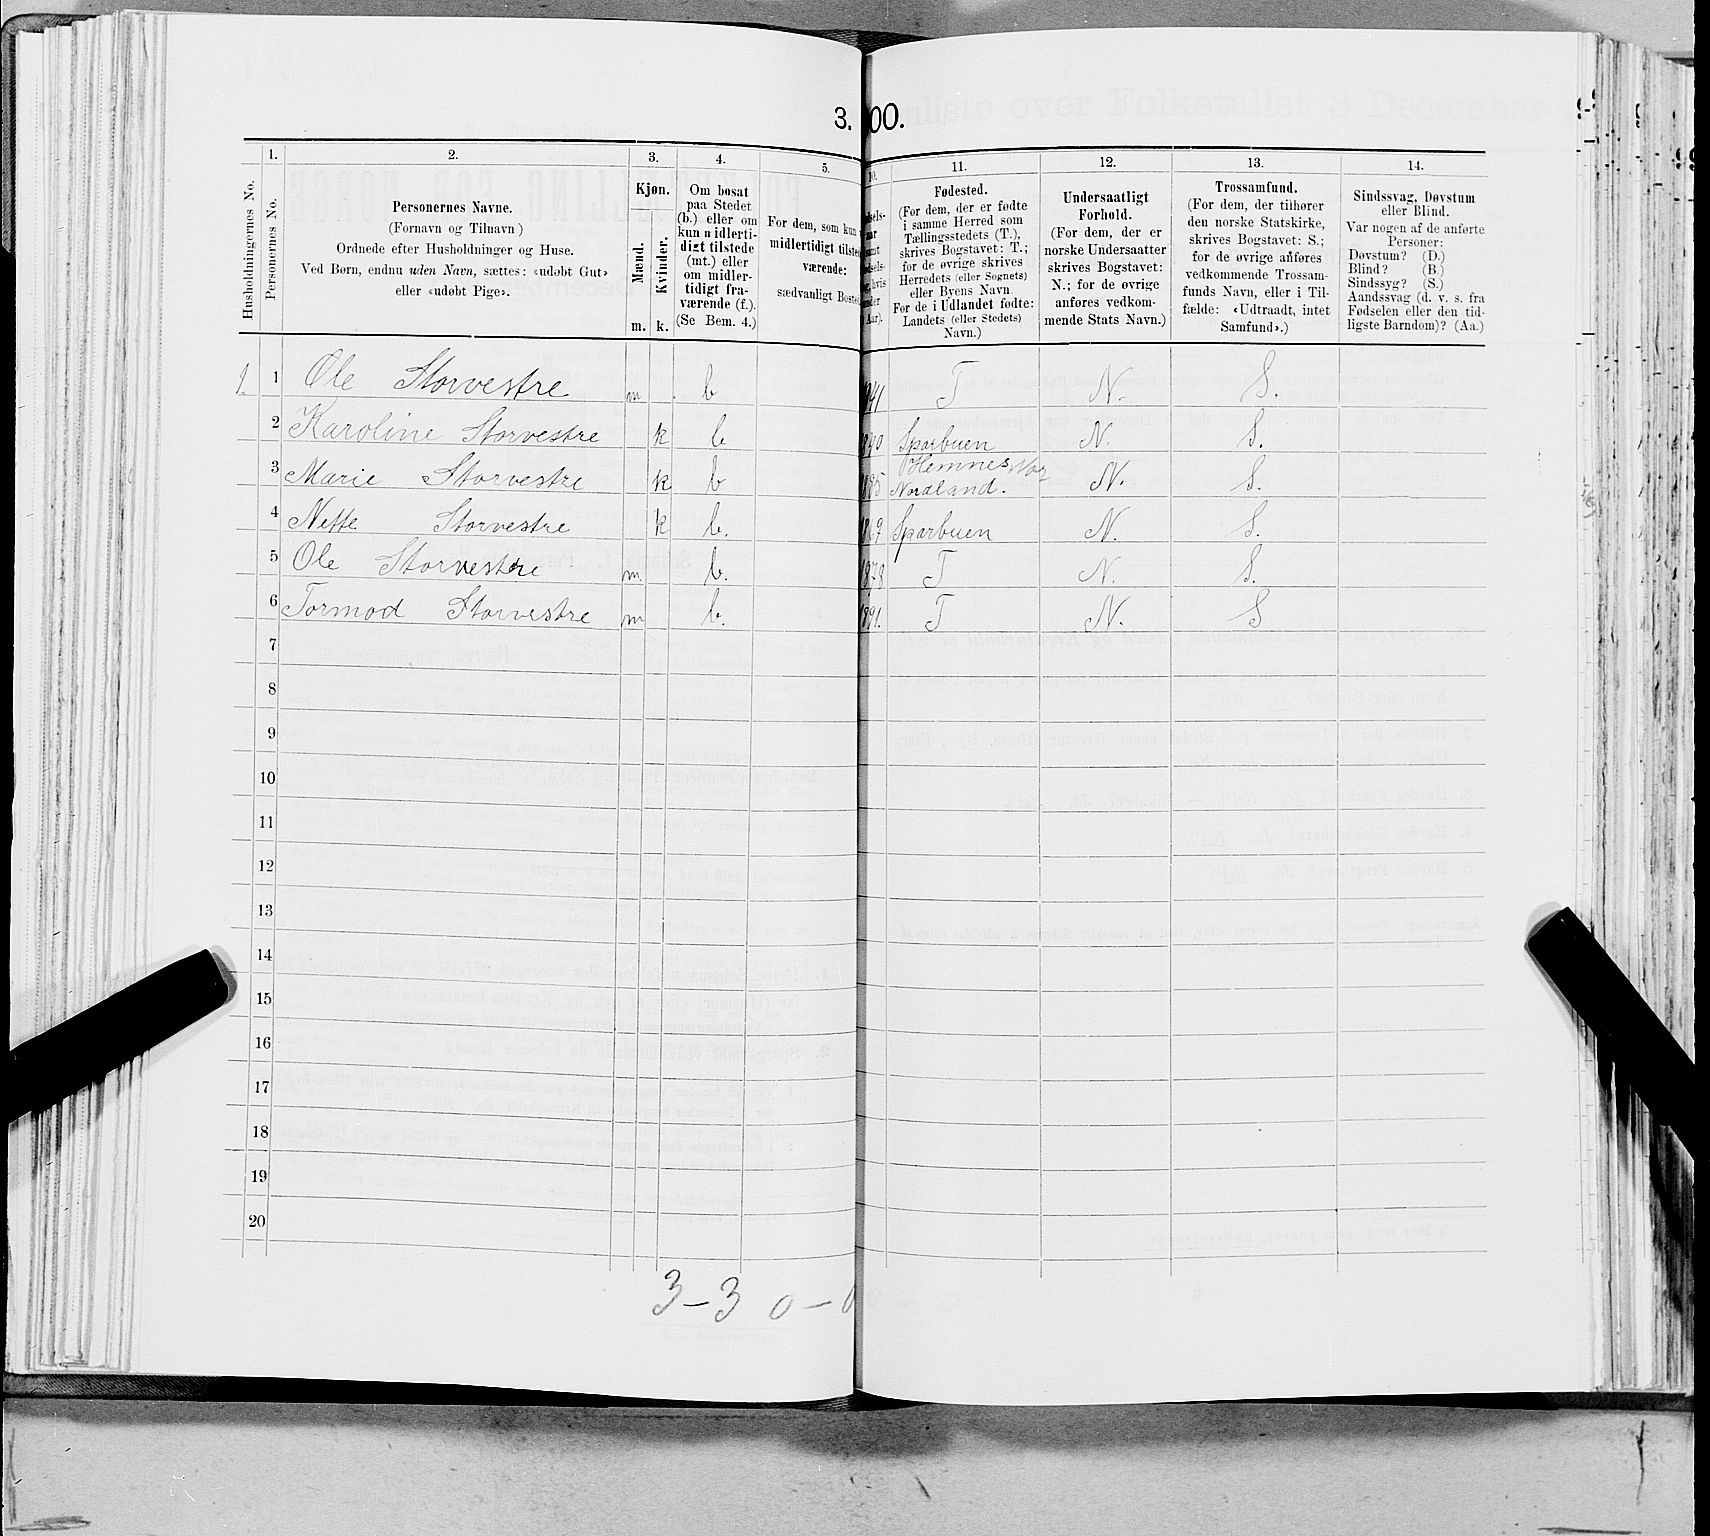 3.
00.
1.
2.
3.
4.
5.
Husholdningernes No.
Personernes No.
Personernes Navne.
(Fornavn og Tilnavn)
Ordnede efter Husholdninger og Huse.
Ved Børn, endnu uden Navn, sættes: «udøbt Gut»
eller «udøbt Pige».
Kjøn.
Mænd.
Kvinder.
m.
k.
Om bosat
paa Stedet
(b.) eller om
kun midlerti-
digt tilstede
(mt.) eller
om midler-
tidigt fra-
værende (f.).
(Se Bem. 4.)
For dem, som kun
midlertidigt tilste
værende:
sædvanligt Bosted
10.
11.
12.
13.
14.
Fødested.
(For dem, der er fødte
i samme Herred som
Tællingsstedets (T.),
skrives Bogstavet: T.;
for de øvrige skrives
Herredets (eller Sognets)
eller Byens Navn.
For de i Udlandet fødte:
Landets (eller Stedets)
Navn.)
Undersaatligt
Forhold.
(For dem, der er
norske Undersaatter
skrives Bogstavet:
N.; for de øvrige
anføres vedkom-
mende Stats Navn.)
Trossamfund.
(For dem, der tilhører
den norske Statskirke,
skrives Bogstavet: S.;
for de øvrige anføres
vedkommende Trossam-
funds Navn, eller i Til-
fælde: «Udtraadt, intet
Samfund».)
Sindssvag, Døvstum
eller Blind.
Var nogen af de anførte
Personer:
Døvstum? (D.)
Blind? (B.)
Sindssyg? (S.)
Aandssvag (d. v. s. fra
Fødselen eller den tid-
ligste Barndom)? (Aa.)
1. 1 Ole Storvestre m b 41 T N. S.
2 Karoline Storvestre k b Sparbuen N. S.
3 Marie Storvestre k b Hemnes Nordland. N. S.
4 Nette Storvestre k b. Sparbuen N. S.
5 Ole Storvestre m b. 1878 T N. S.
6 Tormod Storvestre m b. 1891. T N. S
7
8
9
10
11
12
13
14
15
16
17
18
19
20
3 – 3 0 – 0